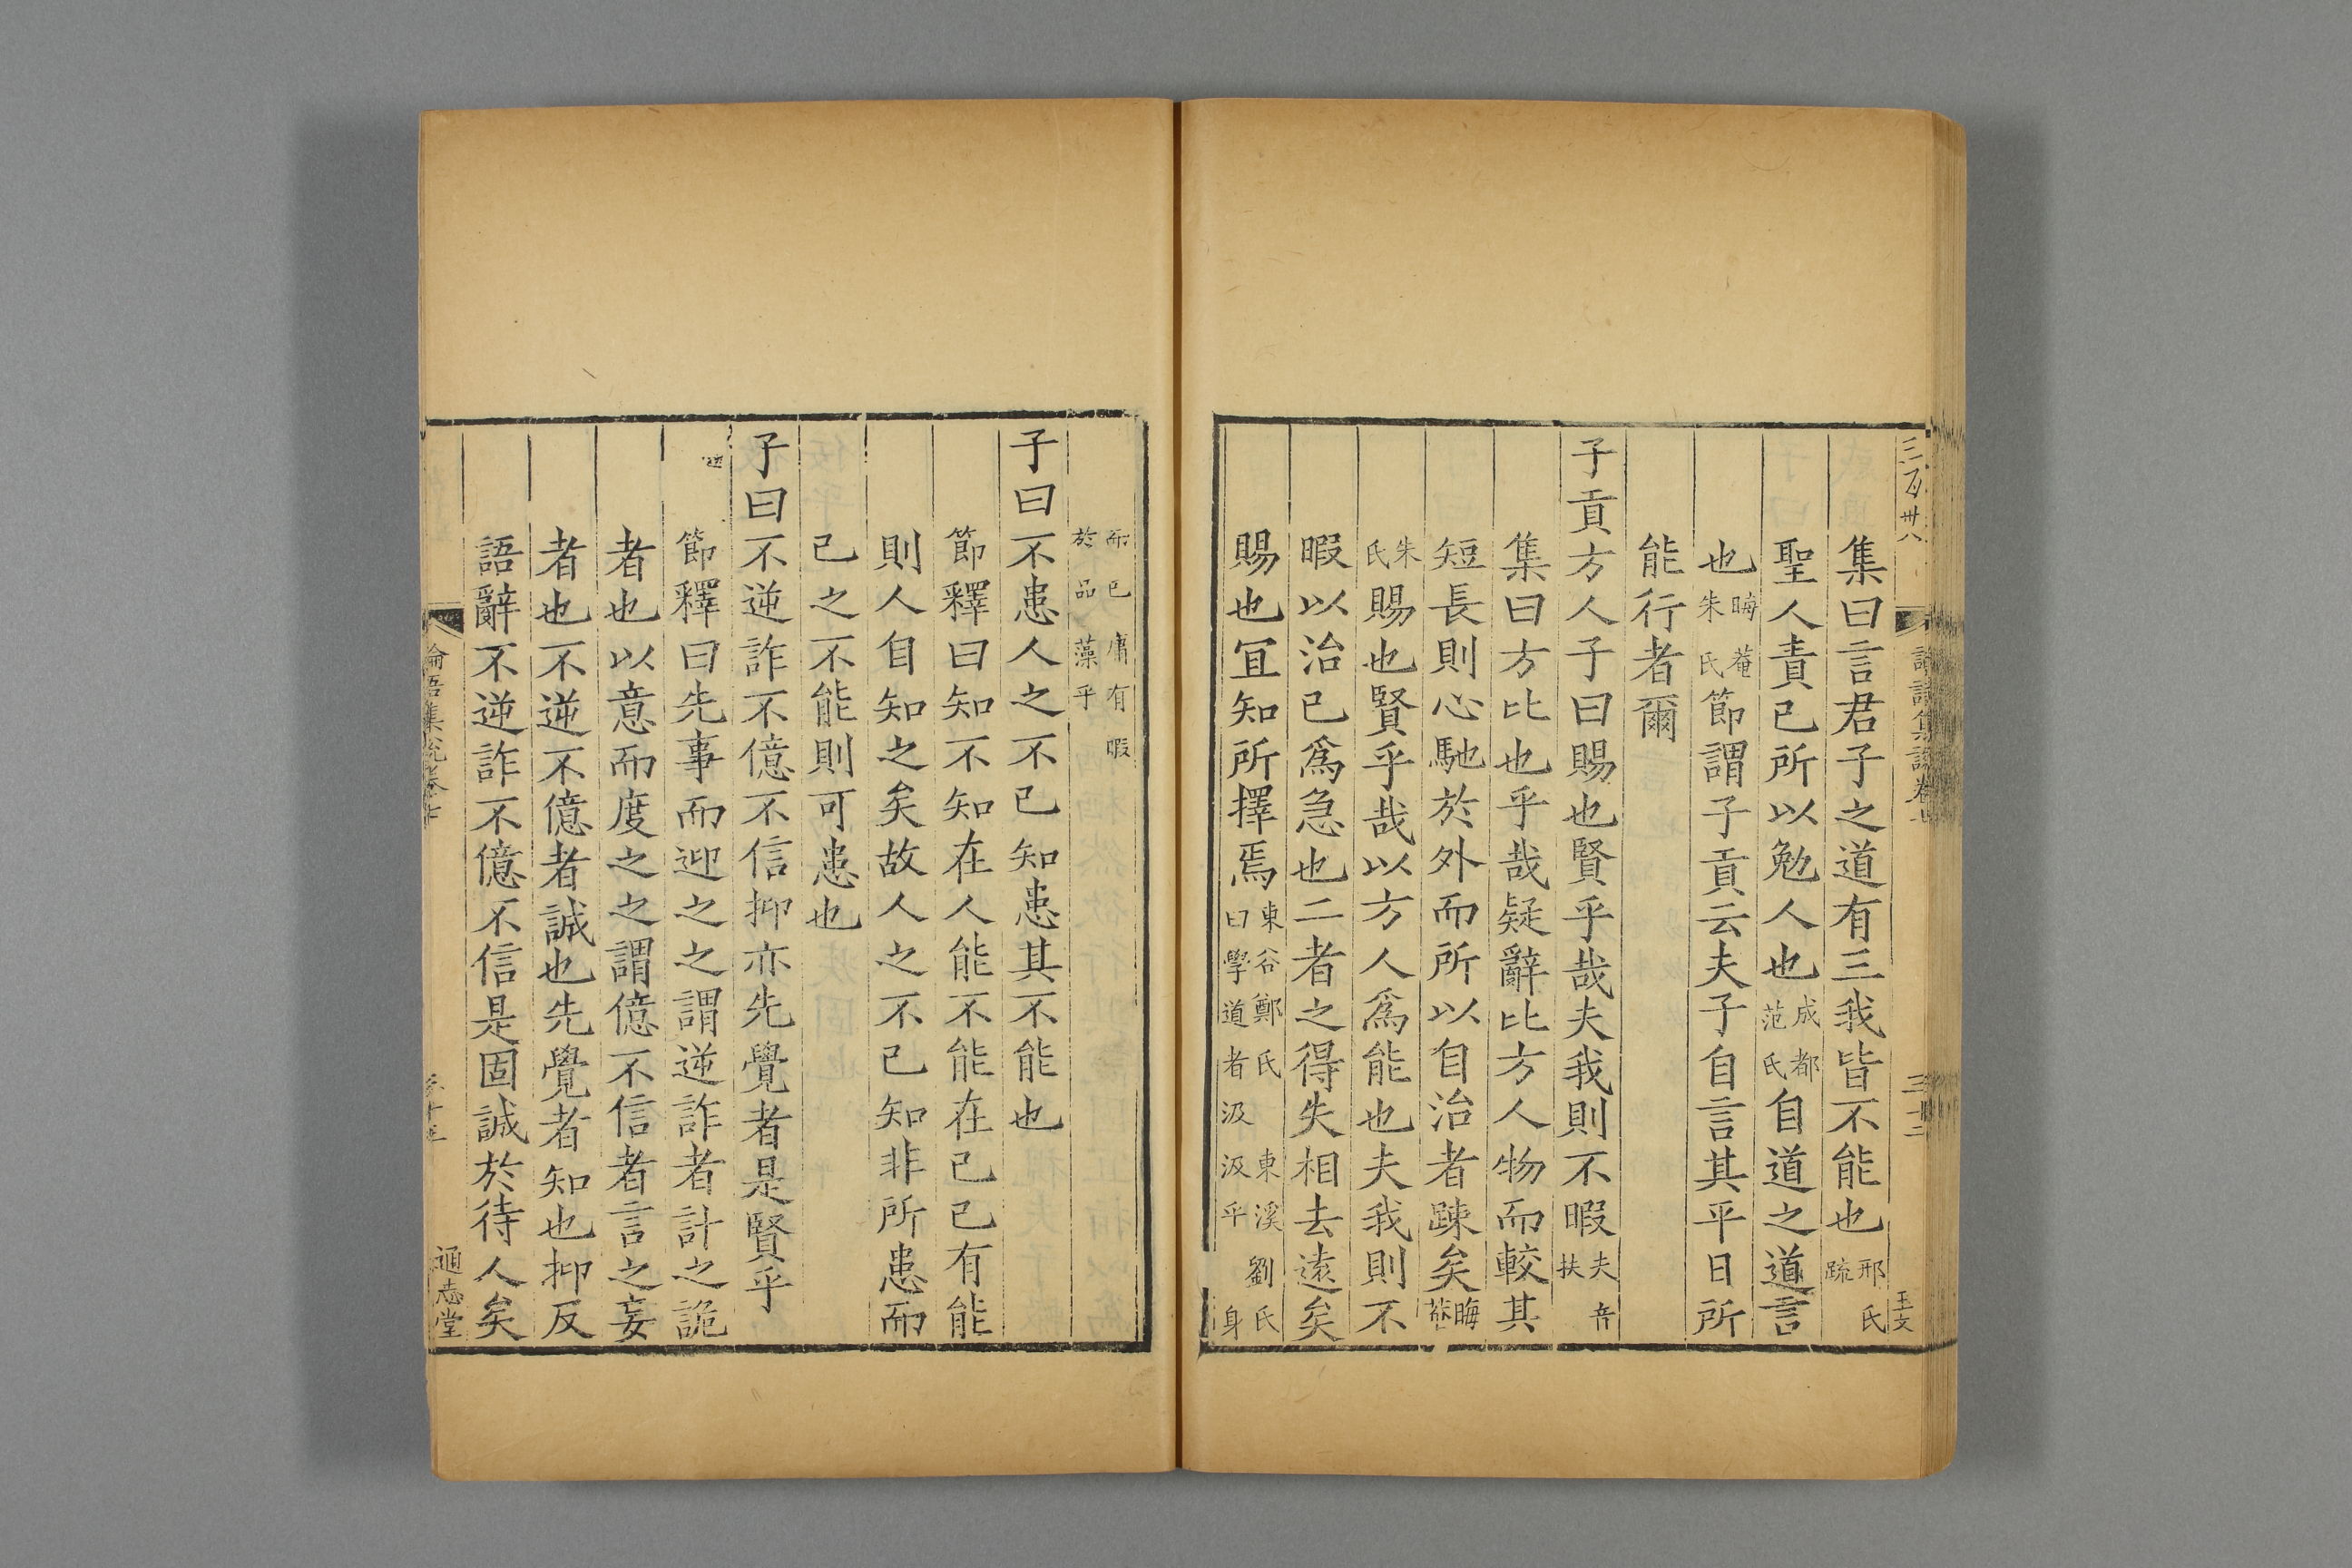 三百卅八
集曰言君子之道有三我皆不能也邢氏疏
聖人責己所以勉人也成都范氏自道之道言
也晦菴朱氏節謂子貢云夫子自言其平日所
能行者爾
子貢方人子曰賜也賢乎哉夫我則不暇夫音扶
集曰方比也乎哉疑辭比方人物而較其
短長則心馳於外而所以自治者疎矣晦菴
朱氏賜也賢乎哉以方人爲能也夫我則不
暇以治己爲急也二者之得失相去遠矣
賜也宜知所擇焉東谷鄭氏曰學道者汲汲乎東溪劉氏身
而已庸有暇於品藻乎
子曰不患人之不己知患其不能也
節釋曰知不知在人能不能在己己有能
則人自知之矣故人之不己知非所患而
己之不能則可患也
子曰不逆詐不億不信抑亦先覺者是賢乎
節釋曰先事而迎之之謂逆詐者計之詭
者也以意而度之之謂億不信者言之妄
者也不逆不億者誠也先覺者知也抑反
語辭不逆詐不億不信是固誠於待人矣
論語集說卷七
通志堂